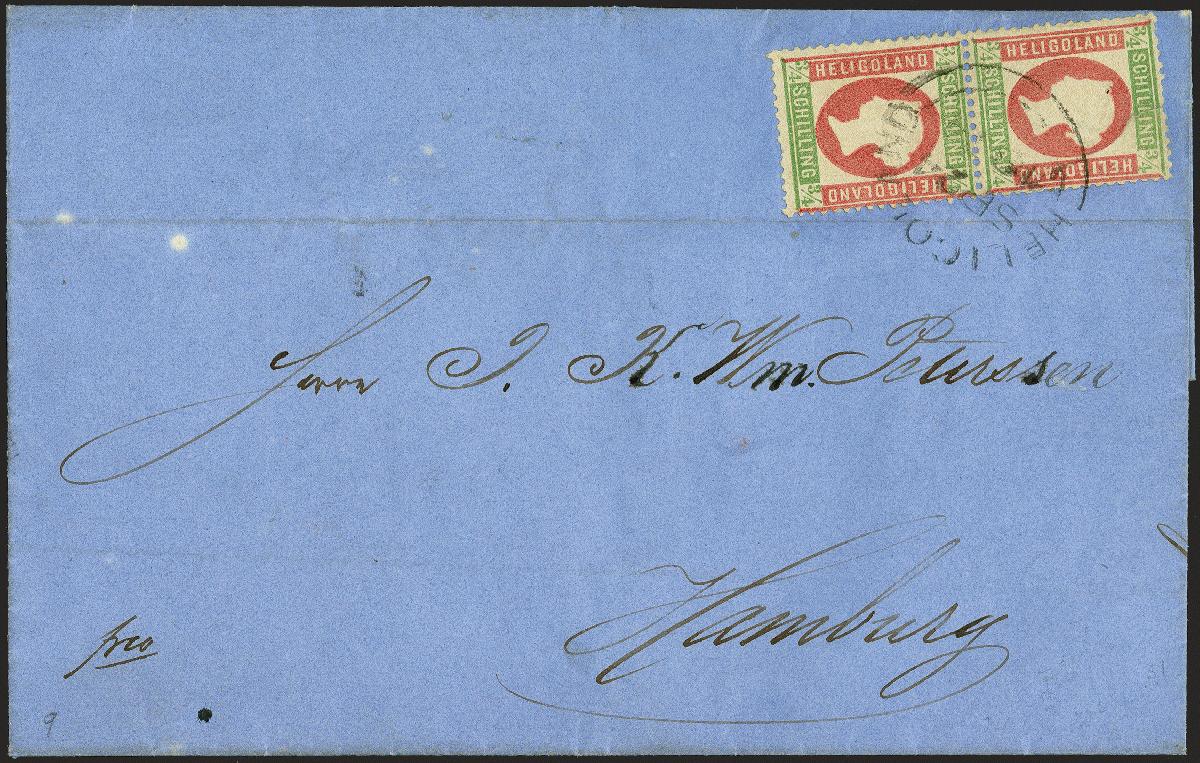 HELIGOLAND HELIGOLAND
3/4 SCHILLING 3/4 SCHILLING 3/4 SCHILLING 3/4 SCHILLING 3/4
HELIGOLAND HELIGOLAND
HELIGOLAND
Herrn J. K. Wm. Peterssen
Hamburg
frco
9